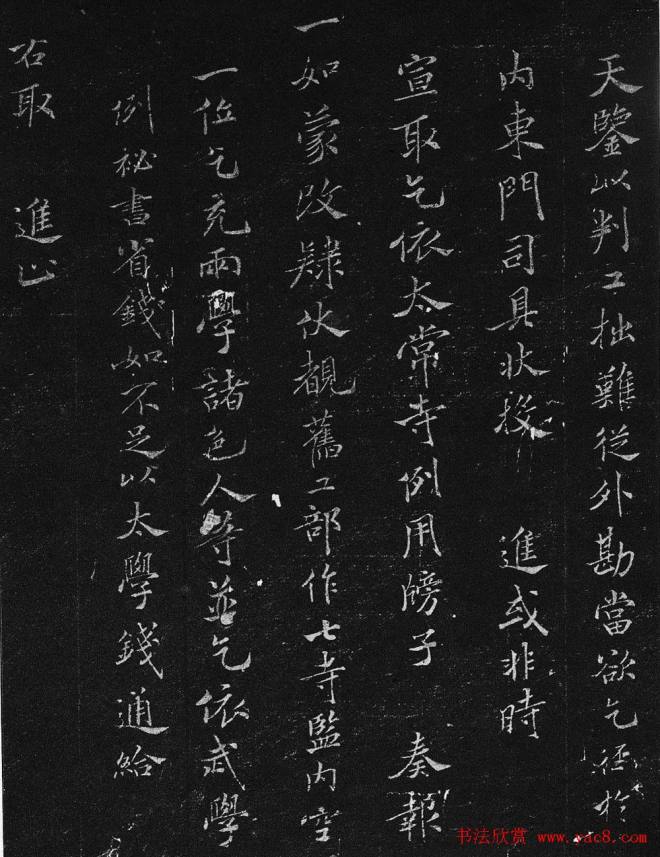 天鑒以判工拙難從外勘當欲乞徑於
內東門司具狀投 進或非時
宣取乞依太常寺例用牓子 奏報
一如蒙改隸伏覩舊工部作七寺監內空
一位乞充兩學諸色人等並乞依武學
例祕書省錢如不足以太學錢通給
右取 進止
书法欣赏 www.yac8.com